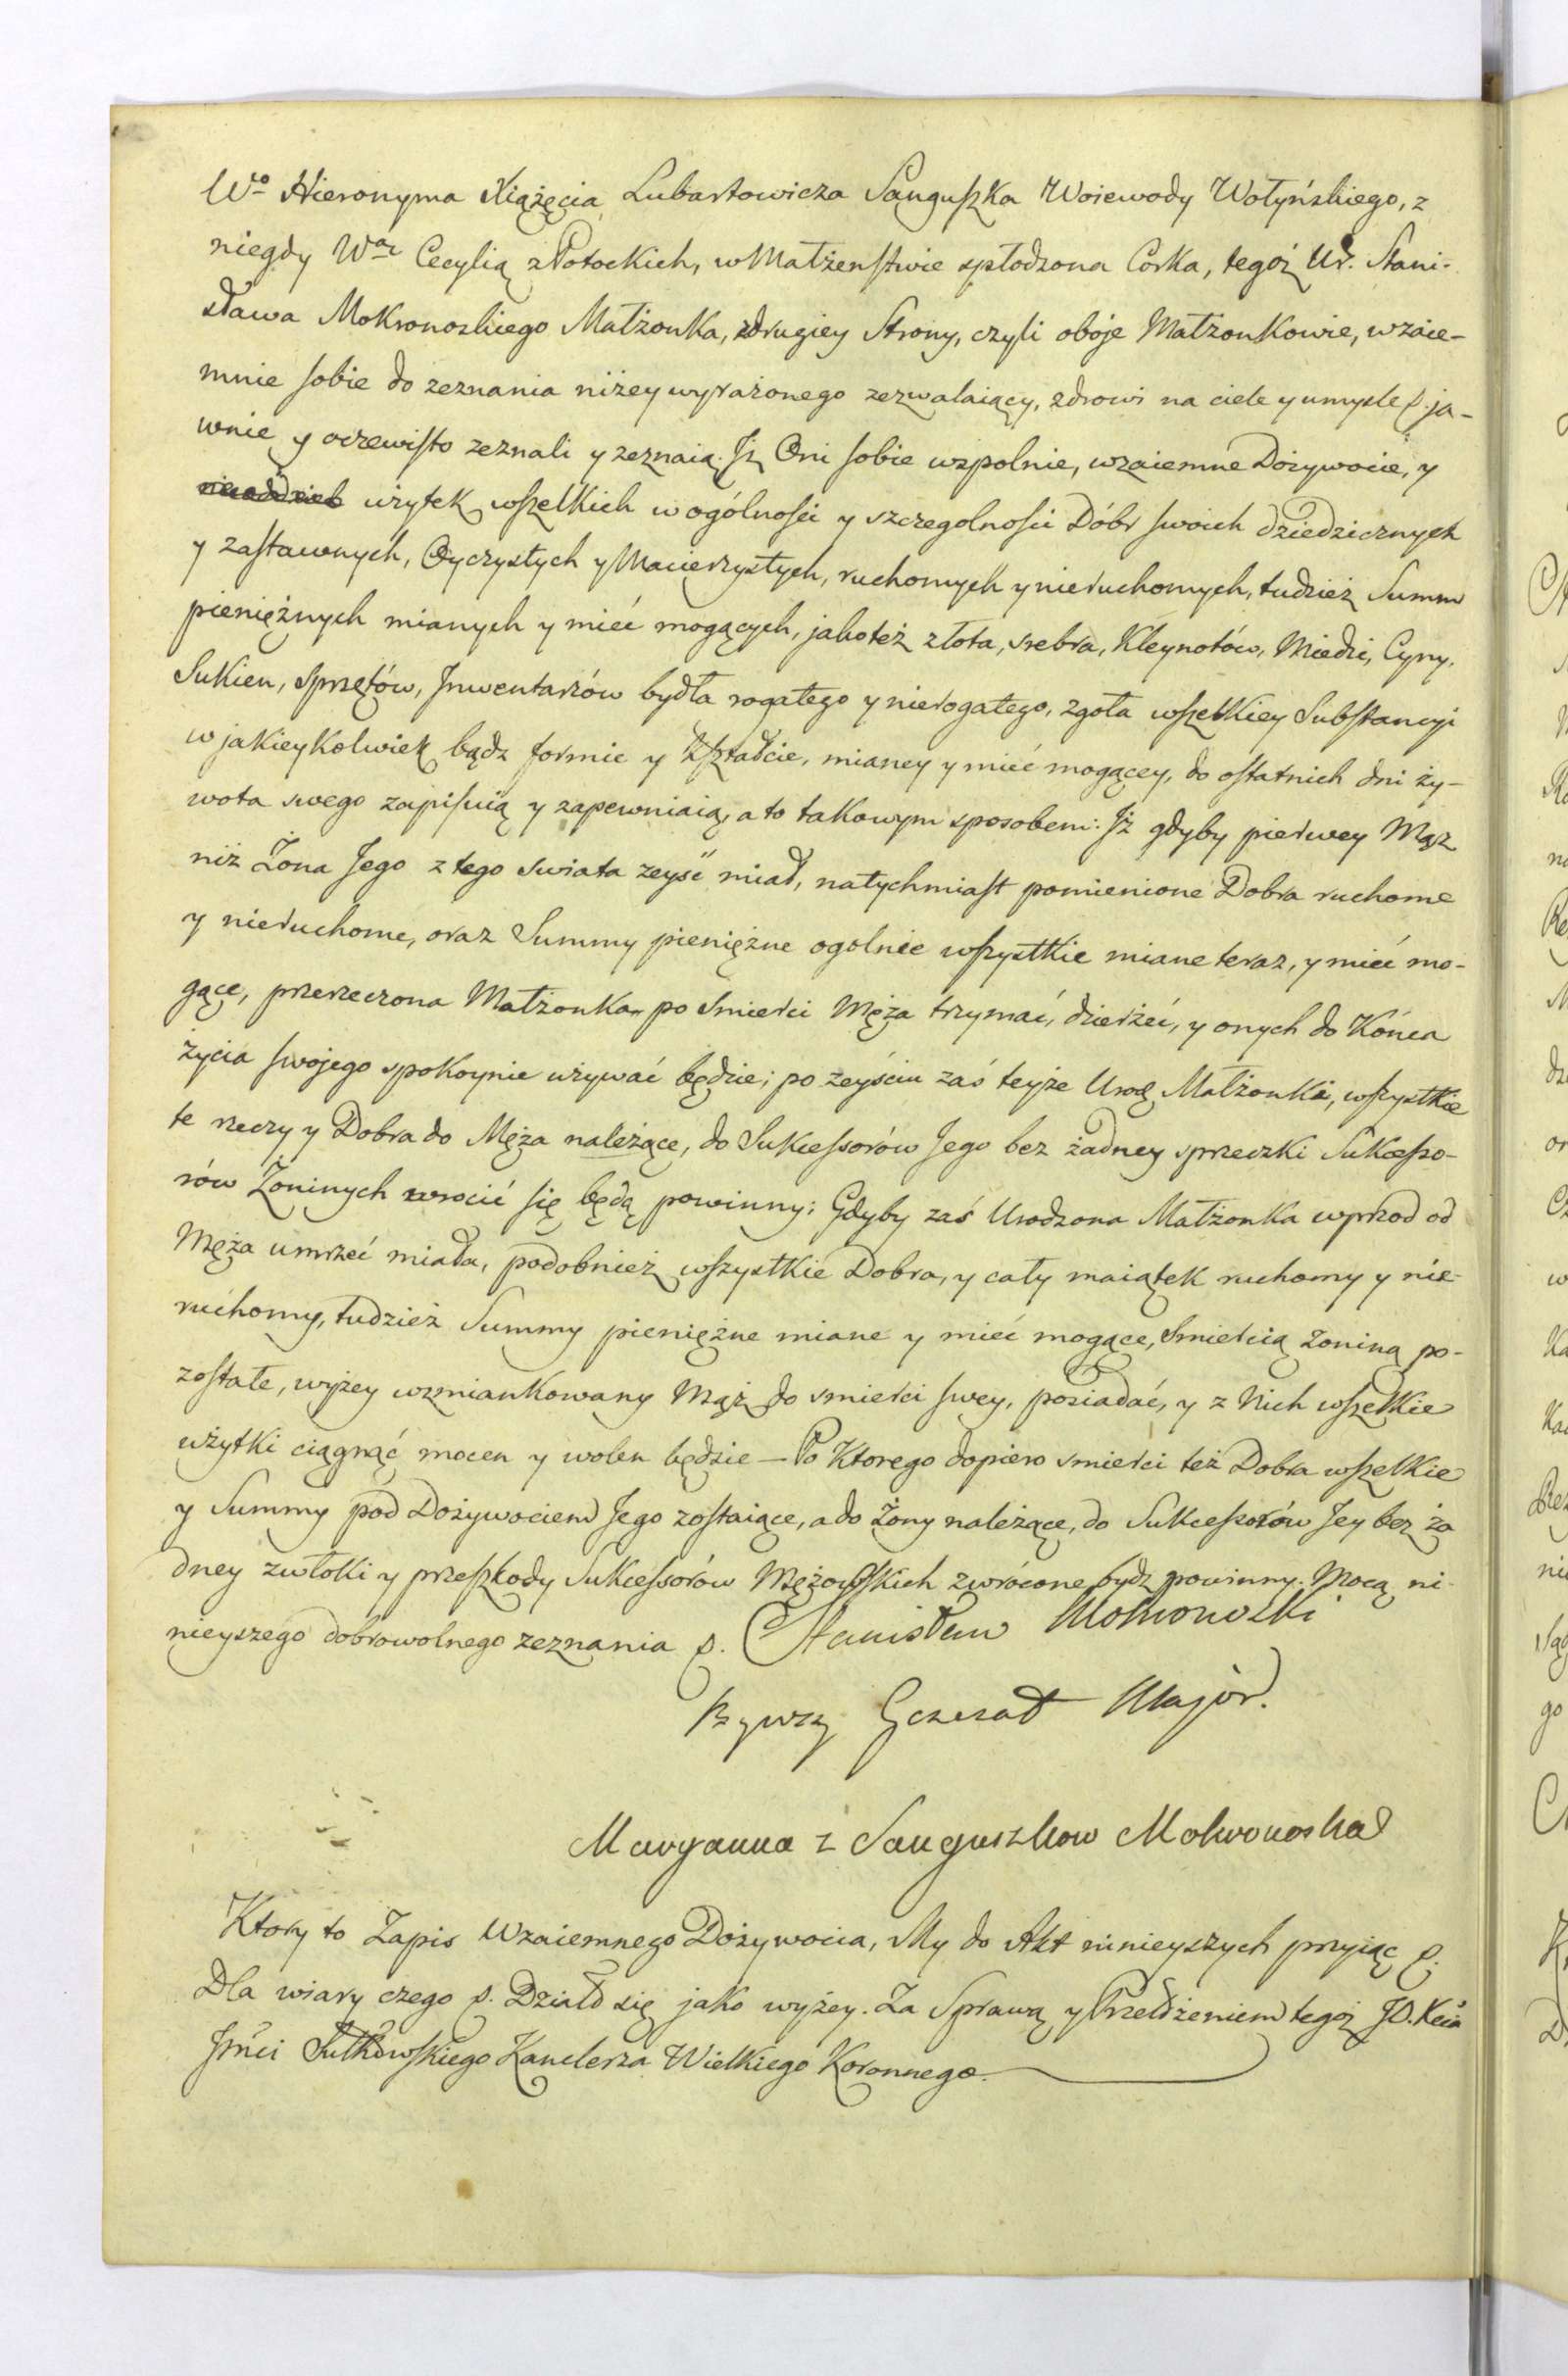 Wo Hieronyma Xiążęcia Lubartowicza Sanguszka Woiewody Wołyńskiego, z
niegdy War Cecylią z Potockich, w Małżenstwie spłodzona Corka, tegoż Ur. Stani-
sława Mokronoskiego Małżonka, z drugiey Strony, czyli oboje Małżonkowie, wzaie-
mnie sobie do zeznania niżey wyrażonego zezwalaiący, zdrowi na ciele y umysle p. ja-
wnie y oczewisto zeznali y zeznaią. Jż Oni sobie wspolnie, wzaiemne Dożywocie, y
użytek wszelkich w ogólnosci y szczegolnosci Dóbr swoich dziedzicznych
y zastawnych, Oyczystych y Macierzystych, ruchomych y nieruchomych, tudzież Summ
pieniężnych mianych y mieć mogących, jako też złota, srebra, Kleynotów, Miedzi, Cyny,
Sukien, Sprzętów, Jnwentarzów bydła rogatego y nierogatego, zgoła wszelkiey Substancyi
w jakieykolwiek bądz formie y kształcie, mianey y mieć mogącey, do ostatnich dni ży-
wota swego zapisuią y zapewniaią, a to takowym sposobem: Jż gdyby pierwey Mąż
niż Żona Jego z tego swiata zeyść miał, natychmiast pomienione Dobra ruchome
y nieruchome, oraz Summy pieniężne ogolnie wszystkie miane teraz, y mieć mo-
gące, przerzeczona Małżonka po smierci Męża trzymać, dzierżeć, y onych do Końca
życia swojego spokoynie używać będzie; po zeyściu zaś teyże Urodz Małżonki, wszystkie
te rzeczy y Dobra do Męża należące, do Sukcessorów Jego bez żadney sprzeczki Sukcesso-
rów Żoninych wrocić się będą powinny; Gdyby zaś Urodzona Małżonka wprzod od
Męża umrzeć miała, podobnież wszystkie Dobra, y cały maiątek ruchomy y nie-
ruchomy, tudzież Summy pieniężne miane y mieć mogące, Smiercią Żoniną po-
zostałe, wyżey wzmiankowany Mąż do smierci swey, posiadać, y z Nich wszelkie
użytki ciągnąć mocen y wolen będzie — Po Ktorego dopiero smierci też Dobra wszelkie
y Summy pod Dożywociem Jego zostaiące, a do Żony należące, do Sukcessorów Jey bez ża
dney zwłoki y przeszkody Sukcessorów Mężowskich zwrócone bydz powinny. Mocą ni-
nieyszego dobrowolnego zeznania p. Stanisław Mokronoski
Bywszy Generał Major.
Maryanna z Sanguszkow Mokronoska
Ktory to Zapis Wzaiemnego Dożywocia, My do Akt ninieyszych przyiąc p.
Dla wiary czego p. Działo się jako wyżey. Za Sprawą y Przełożeniem tegoż JO. Xcia
Jmci Sułkowskiego Kanclerza Wielkiego Koronnego.